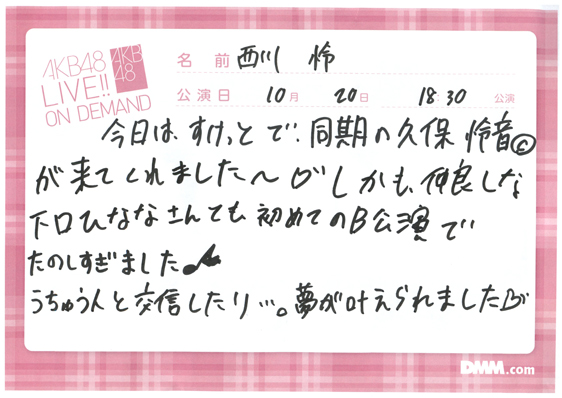 AKB48
LIVE!!
ON DEMAND
AKB
48
名前 西川 怜
公演日 10月 20日 18:30 公演
今日は、すけっとで、同期の久保怜音©
が来てくれました〜♡しかも、仲良しな
下口ひななさんても、初めてのB公演で
たのしすぎました♪
うちゅう人と交信したり…。夢が叶えられました♡
DMM.com